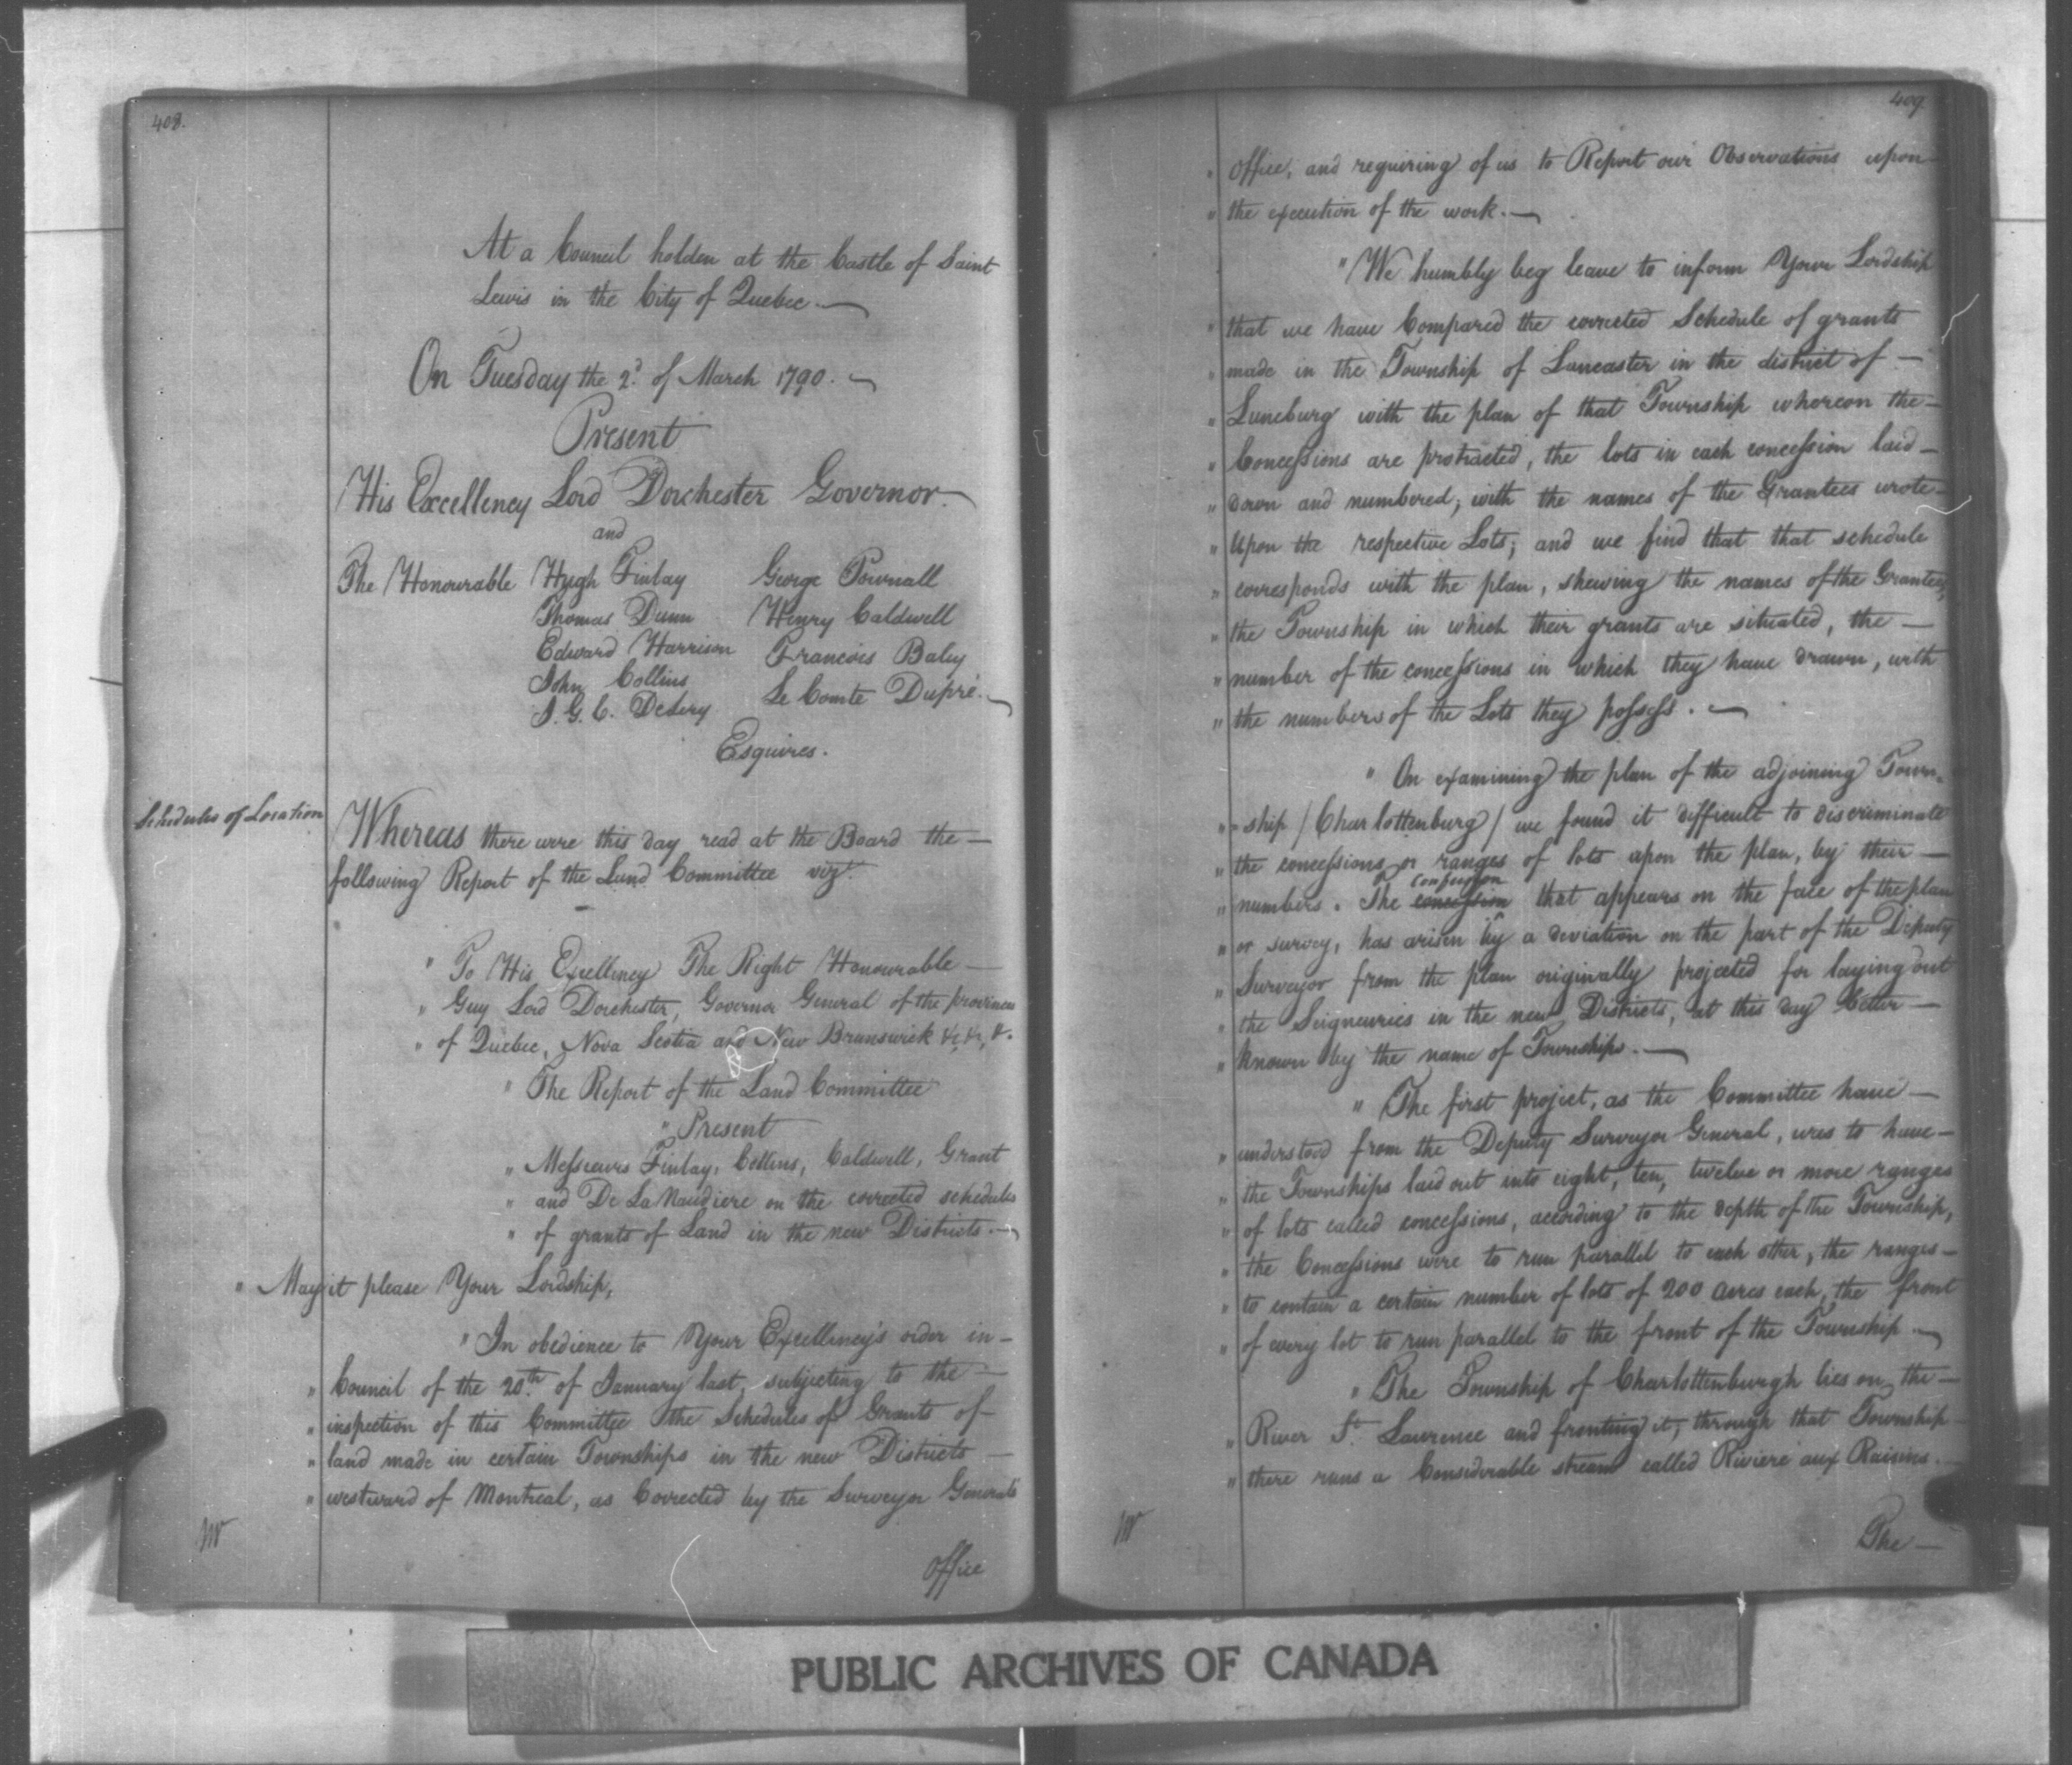 408.
At a Council holden at the Castle of Saint
Lewis in the City of Quebec.
On Tuesday the 2d. of March 1790.
Present
His Excellency Lord Dorchester Governor.
and
The Honourable Hugh Finlay George Pownall
Thomas Dunn Henry Caldwell
Edward Harrison Francois Baby
John Collins Le Comte Dupré.
J. G. C. Delery
Esquires.
Schedules of Location
Whereas there were this day read at the Board the
following Report of the Land Committee vizt.
" To His Excellency The Right Honourable
" Guy Lord Dorchester, Governor General of the provinces
" of Quebec, Nova Scotia and New Brunswick &c, &c, &.
" The Report of the Land Committee
" Present
" Messieurs Finlay, Collins, Caldwell, Grant
" and De La Naudiere on the corrected schedules
" of grants of Land in the new Districts.
" May it please Your Lordship,
" In obedience to Your Excellency's order in
" Council of the 20th. of January last, subjecting to the
" inspection of this Committee the Schedules of Grants of
" land made in certain Townships in the new Districts
" westward of Montreal, as Corrected by the Surveyor Generals
Office
409
" Office, and requiring of us to Report our Observations upon
" the execution of the work.
" We humbly beg leave to inform Your Lordship
" that we have Compared the corrected Schedule of grants
" made in the Township of Lancaster in the district of
" Luneburg with the plan of that Township whereon the
" Concessions are protracted, the lots in each concession laid
" down and numbered, with the names of the Grantees wrote
" Upon the respective Lots; and we find that that schedule
" corresponds with the plan, shewing the names of the Grantees,
" the Township in which their grants are situated, the
" number of the concessions in which they have drawn, with
" the numbers of the Lots they possess.
" On examining the plan of the adjoining Town-
" -ship / Charlottenburg / we found it difficult to discriminate
" the concessions or ranges of lots upon the plan, by their
confusion
" numbers. The concession that appears on the face of the plan
" or survey, has arisen by a deviation on the part of the Deputy
" Surveyor from the plan originally projected for laying out
" the Seigneuries in the new Districts, at this day better
" known by the name of Townships.
" The first project, as the Committee have
" understood from the Deputy Surveyor General, was to have
" the Townships laid out into eight, ten, twelve or more ranges
" of lots called concessions, according to the depth of the Township,
" the Concessions were to run parallel to each other, the ranges
" to contain a certain number of lots of 200 acres each, the front
" of every lot to run parallel to the front of the Township.
" The Township of Charlottenburgh lies on the
" River St. Lawrence and fronting it, through that Township
" there runs a Considerable stream called Riviere aux Raisins.
The
PUBLIC ARCHIVES OF CANADA